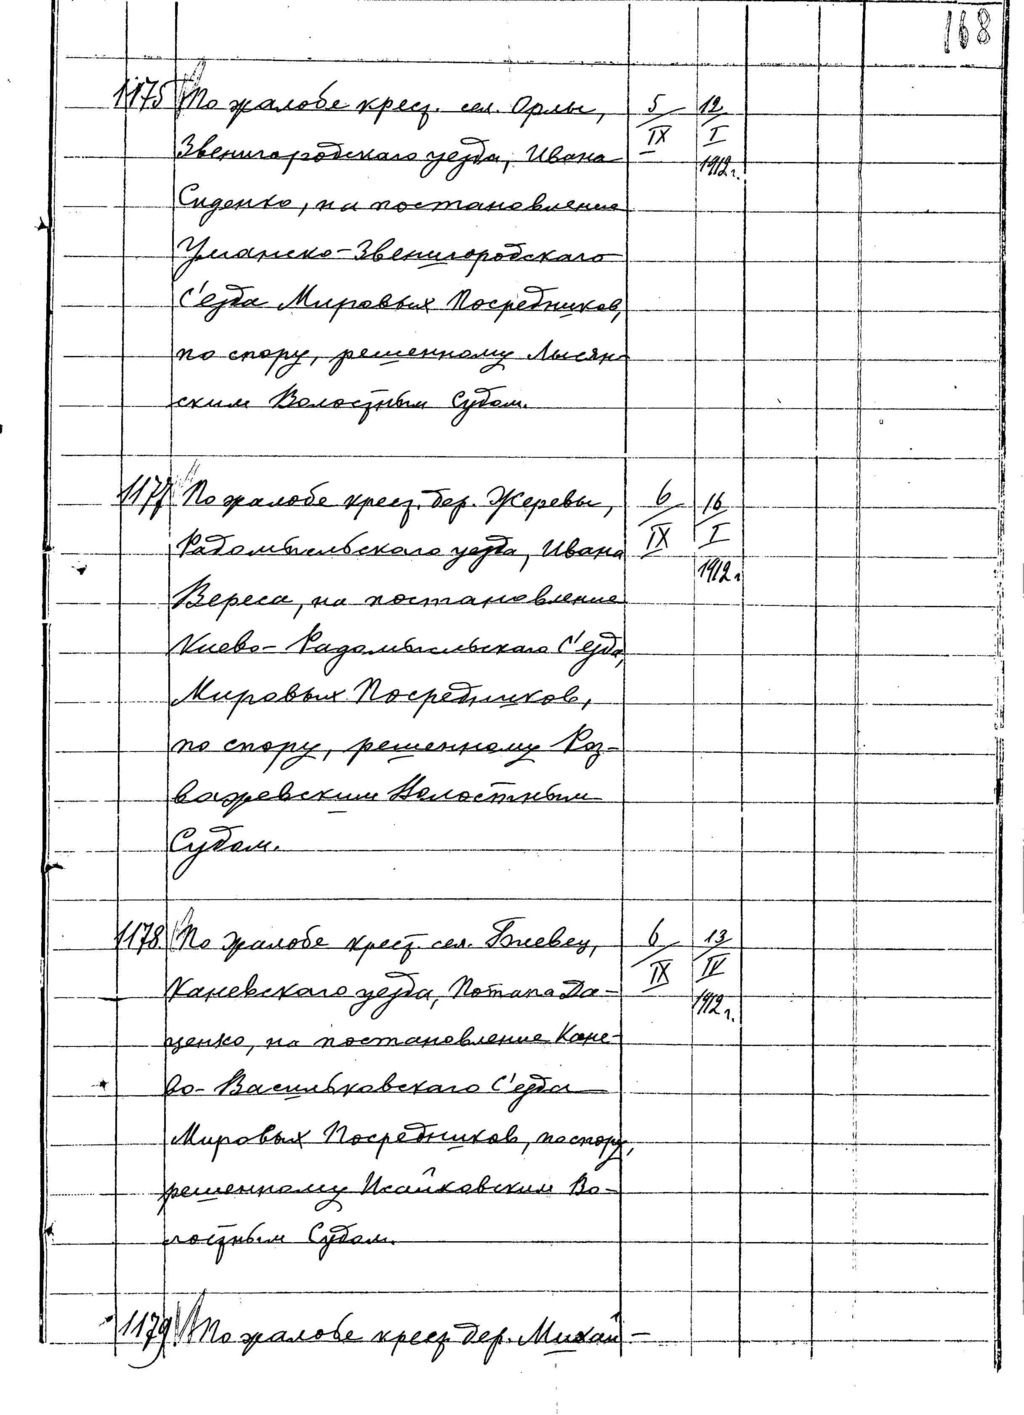 168
1175 По жалобе крест. сел. Орлы, 5 12
Звенигородскаго уезда, Ивана IX I
Сиденко, на постановление 1912 г.
Уманско-Звенигородскаго
С'езда Мировых Посредников,
по спору, решенному Лысян-
ским Волостным Судом.
1177 По жалобе крест. дер. Жеревы, 6 16
Радомысльскаго уезда, Ивана IX I
Вереса, на постановление 1912 г.
Киево-Радомысльскаго С'езда,
Мировых Посредников,
по спору, решенному Роз-
важевским Волостным
Судом.
1178 По жалобе крест. сел. 6 13
Каневскаго уезда, Потапа Да- IX IV
ценко, на постановление Кане- 1912 г.
во-Васильковскаго С'езда
Мировых Посредников, по спору,
решенному Исайковским Во-
лостным Судом.
1179 По жалобе крест. дер. Михай-